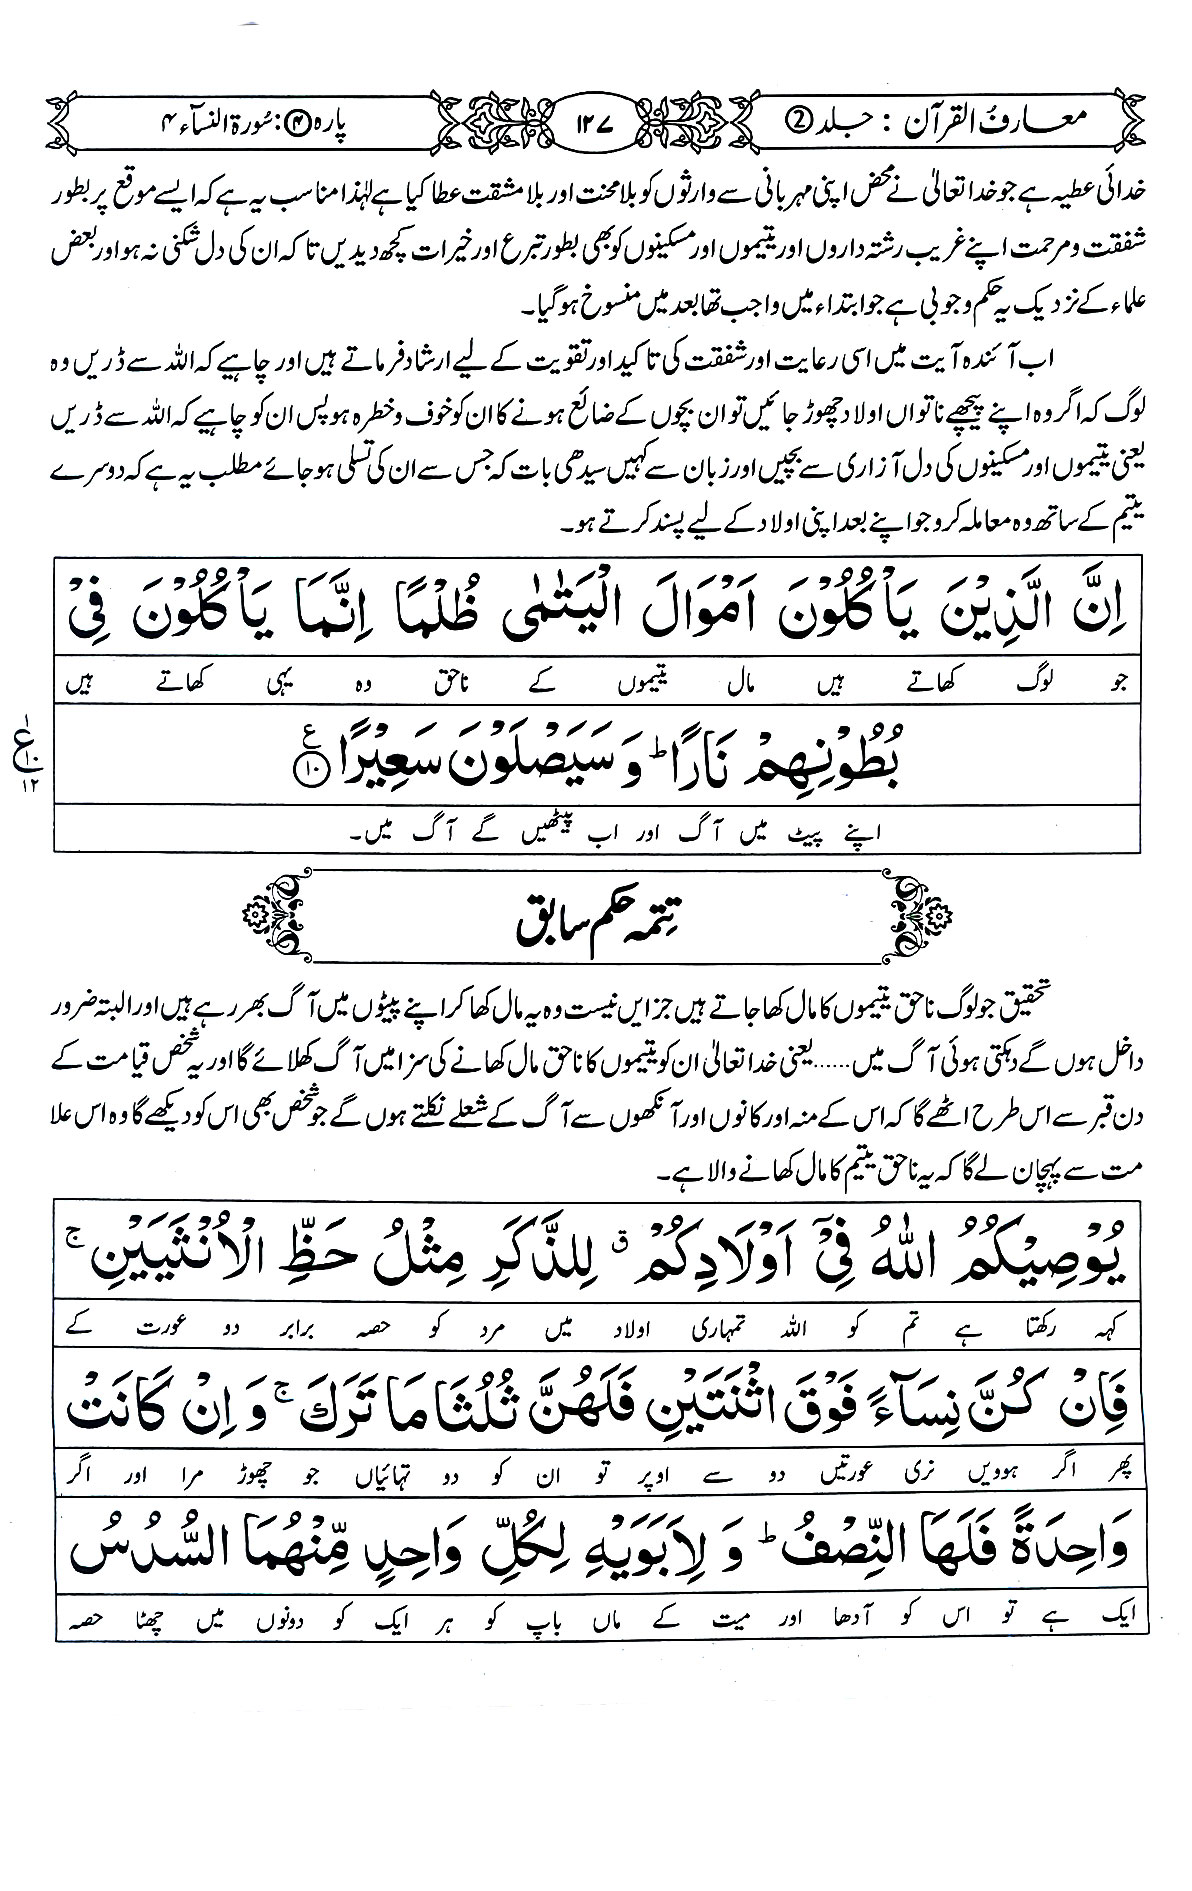 معارفُ القرآن : جلد ②
۱۲۷
پارہ ④ : سُورۃ النسآء ۴
خدائی عطیہ ہے جو خدا تعالیٰ نے محض اپنی مہربانی سے وارثوں کو بلا محنت اور بلا مشقت عطا کیا ہے لہٰذا مناسب یہ ہے کہ ایسے موقع پر بطور
شفقت و مرحمت اپنے غریب رشتہ داروں اور یتیموں اور مسکینوں کو بھی بطور تبرع اور خیرات کچھ دیدیں تا کہ ان کی دل شکنی نہ ہو اور بعض
علماء کے نزدیک یہ حکم وجوبی ہے جو ابتداء میں واجب تھا بعد میں منسوخ ہو گیا۔
اب آئندہ آیت میں اسی رعایت اور شفقت کی تاکید اور تقویت کے لیے ارشاد فرماتے ہیں اور چاہیے کہ اللہ سے ڈریں وہ
لوگ کہ اگر وہ اپنے پیچھے ناتواں اولاد چھوڑ جائیں تو ان بچوں کے ضائع ہونے کا ان کو خوف و خطرہ ہو پس ان کو چاہیے کہ اللہ سے ڈریں
یعنی یتیموں اور مسکینوں کی دل آزاری سے بچیں اور زبان سے کہیں سیدھی بات کہ جس سے ان کی تسلی ہو جائے مطلب یہ ہے کہ دوسرے
یتیم کے ساتھ وہ معاملہ کرو جو اپنے بعد اپنی اولاد کے لیے پسند کرتے ہو۔
اِنَّ الَّذِيْنَ يَاْكُلُوْنَ اَمْوَالَ الْيَتٰمٰى ظُلْمًا اِنَّمَا يَاْكُلُوْنَ فِيْ
جو لوگ کھاتے ہیں مال یتیموں کے ناحق وہ یہی کھاتے ہیں
بُطُوْنِهِمْ نَارًا ؕ وَ سَيَصْلَوْنَ سَعِيْرًا ۱۰ ع
۱
ع
۱۰
۱۲
اپنے پیٹ میں آگ اور اب پیٹھیں گے آگ میں۔
تتمہ حکم سابق
تحقیق جو لوگ ناحق یتیموں کا مال کھا جاتے ہیں جز ایں نیست وہ یہ مال کھا کر اپنے پیٹوں میں آگ بھر رہے ہیں اور البتہ ضرور
داخل ہوں گے دہکتی ہوئی آگ میں ...... یعنی خدا تعالیٰ ان کو یتیموں کا ناحق مال کھانے کی سزا میں آگ کھلائے گا اور یہ شخص قیامت کے
دن قبر سے اس طرح اٹھے گا کہ اس کے منہ اور کانوں اور آنکھوں سے آگ کے شعلے نکلتے ہوں گے جو شخص بھی اس کو دیکھے گا وہ اس علا
مت سے پہچان لے گا کہ یہ ناحق یتیم کا مال کھانے والا ہے۔
يُوْصِيْكُمُ اللّٰهُ فِيْٓ اَوْلَادِكُمْ ۗ لِلذَّكَرِ مِثْلُ حَظِّ الْاُنْثَيَيْنِ ۚ
کہہ رکھتا ہے تم کو اللہ تمہاری اولاد میں مرد کو حصہ برابر دو عورت کے
فَاِنْ كُنَّ نِسَآءً فَوْقَ اثْنَتَيْنِ فَلَهُنَّ ثُلُثَا مَا تَرَكَ ۚ وَ اِنْ كَانَتْ
پھر اگر ہوویں نری عورتیں دو سے اوپر تو ان کو دو تہائیاں جو چھوڑ مرا اور اگر
وَاحِدَةً فَلَهَا النِّصْفُ ؕ وَ لِاَبَوَيْهِ لِكُلِّ وَاحِدٍ مِّنْهُمَا السُّدُسُ
ایک ہے تو اس کو آدھا اور میت کے ماں باپ کو ہر ایک کو دونوں میں چھٹا حصہ